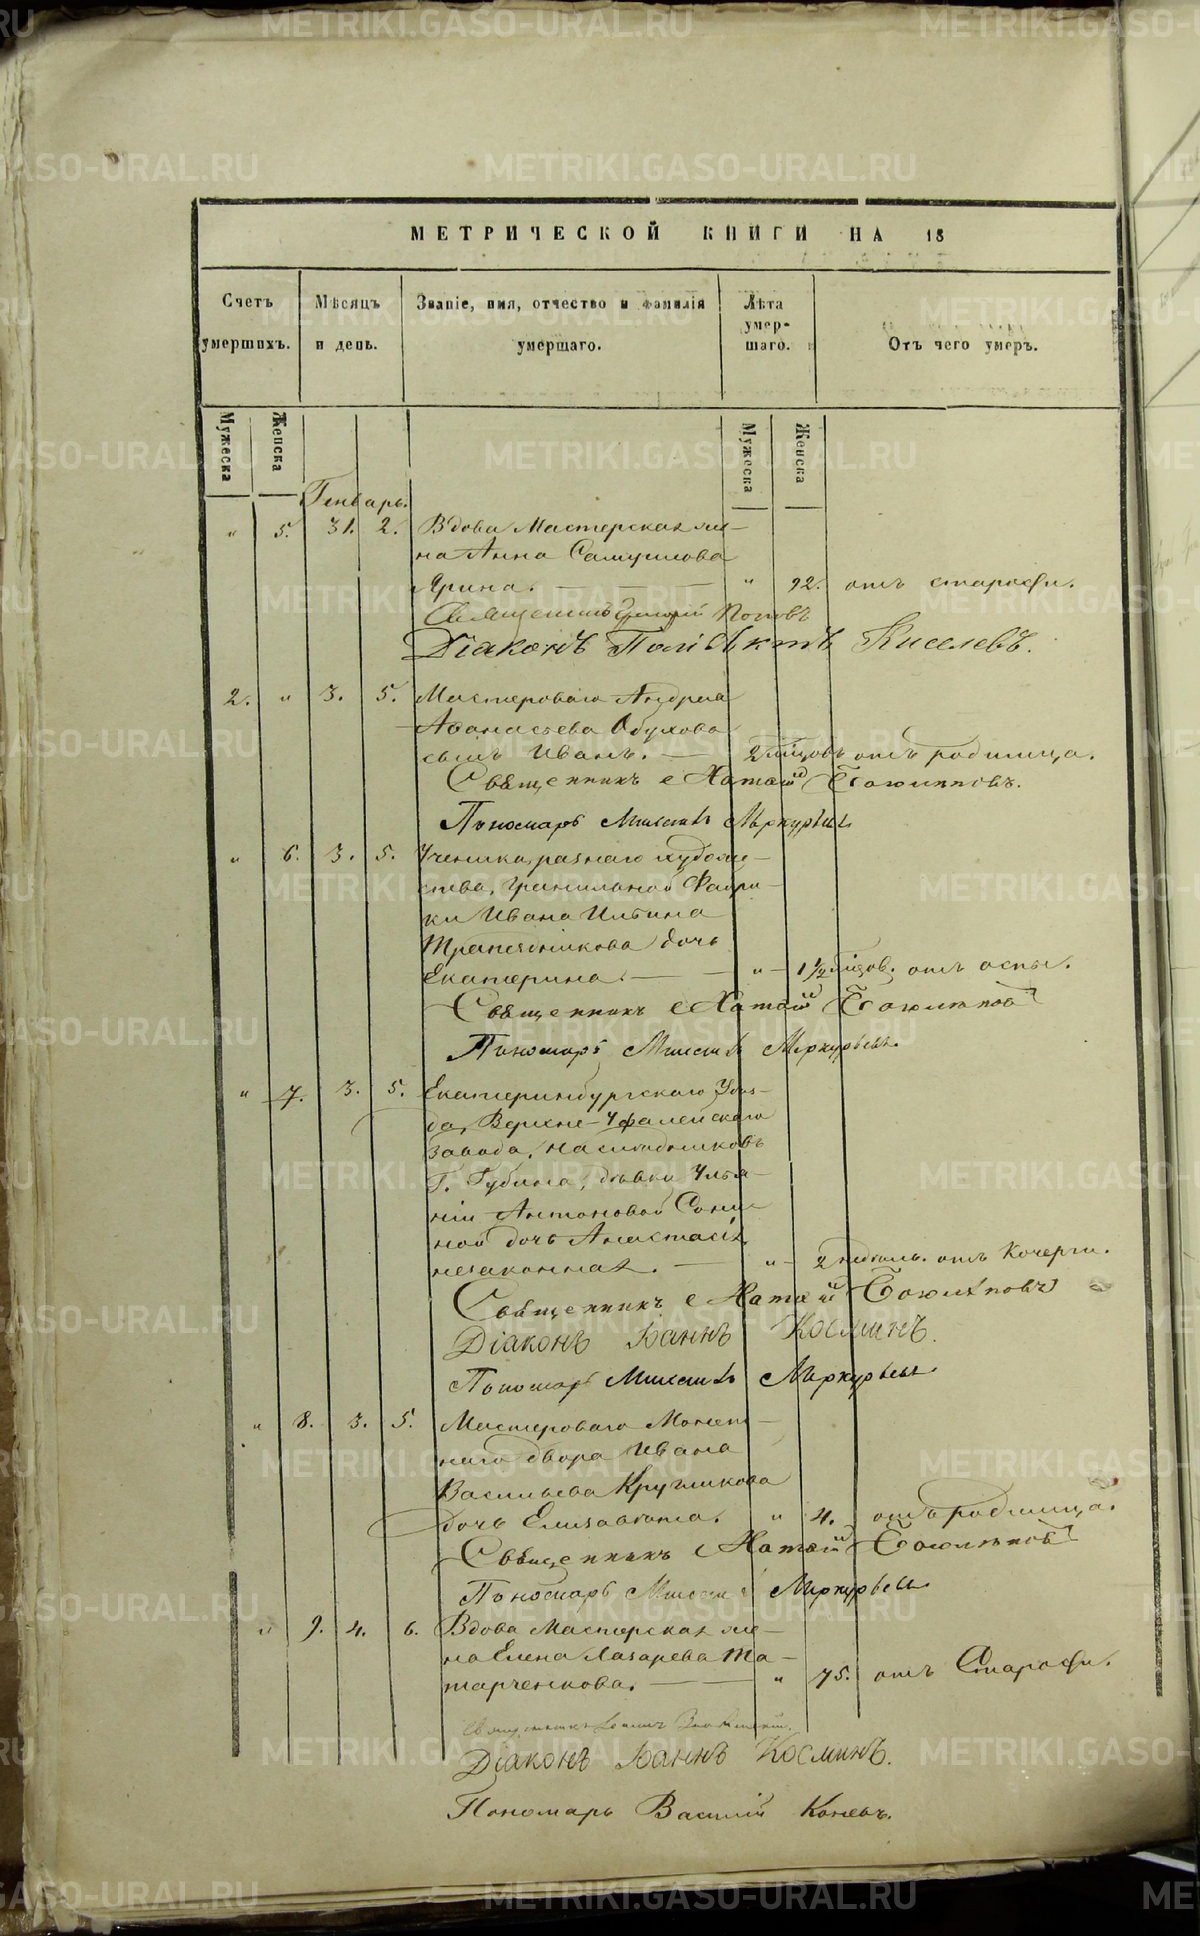 МЕТРИЧЕСКОЙ КНИГИ НА 18
Счетъ умершихъ.
Мѣсяцъ и день.
Званіе, имя, отчество и фамилія умершаго.
Лѣта умершаго.
Отъ чего умеръ.
Мужеска
Женска
Мужеска
Женска
Генварь.
" 5. 31. 2. Вдова Мастерская же-
на Анна Самуилова
Ярина. — " 92. отъ старости.
Священникъ Попов
Діаконъ Поліевктъ Киселевъ.
2. " 3. 5. Мастероваго Андрея
Афанасьева Обухова
сынъ Иванъ. — 2 мѣсцовъ отъ родимца.
Священникъ
Пономарь Меркурьевъ
" 6. 3. 5. Ученика, разнаго художе-
ства, гранильной Фабри-
ки Ивана Ильина
Трапезникова дочь
Екатерина. — " 1 1/2 мѣсцов. отъ оспы.
Священникъ
Пономарь Меркурьевъ.
" 7. 3. 5. Екатеринбургскаго Уѣз-
да, Верхне-Уфалейскаго
завода, наслѣдниковъ
Г. Губина, дѣвки Улья-
ніи Антоновой
ной дочь Анастасія
незаконная. — " 2 недѣль. отъ Кочерги.
Священникъ
Діаконъ Іоаннъ Косминъ.
Пономарь Меркурьевъ
" 8. 3. 5. Мастероваго Монет-
наго двора Ивана
Васильева Кругликова
дочь Елизавета. " 4. отъ родимца.
Священникъ
Пономарь Меркурьевъ
" 9. 4. 6. Вдова Мастерская же-
на Елена Лазарева Та-
тарченкова. — " 75. отъ Старости.
Священникъ Іоаннъ
Діаконъ Іоаннъ Косминъ.
Пономарь Василій Коневъ.
METRIKI.GASO-URAL.RU